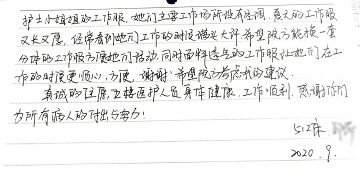 护士小姐姐的工作服，她们主要工作场所没有空调，夏天的工作服
又长又厚，经常看到她们工作的时候满头大汗，希望院方能换一套
分体的工作服方便她们活动，同时面料透气的工作服让她们在工
作的时候更顺心，方便，谢谢！希望院方考虑我的建议。
真诚的祝愿，五楼医护人员身体健康，工作顺利，感谢你们
为所有病人的付出与努力！
512床
2020.9.